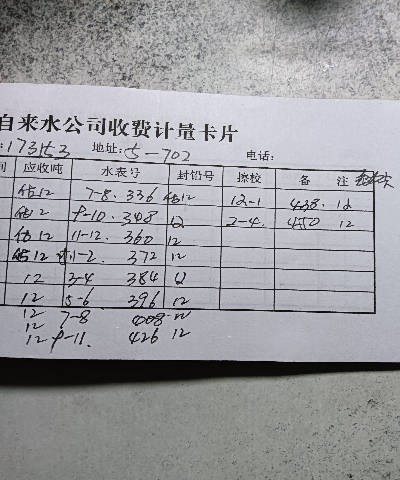 自来水公司收费计量卡片
:173153 地址:5-702 电话:
间 应收吨 水表号 封铅号 擦校 备 注
估12 7-8. 336 估12 12-1 438. 12
估12 9-10. 348 12 2-4. 450 12
估12 11-12. 360 12
估12 1-2 372 12
12 3-4 384 12
12 5-6 396 12
12 7-8 408 12
12
12 9-11. 426 12